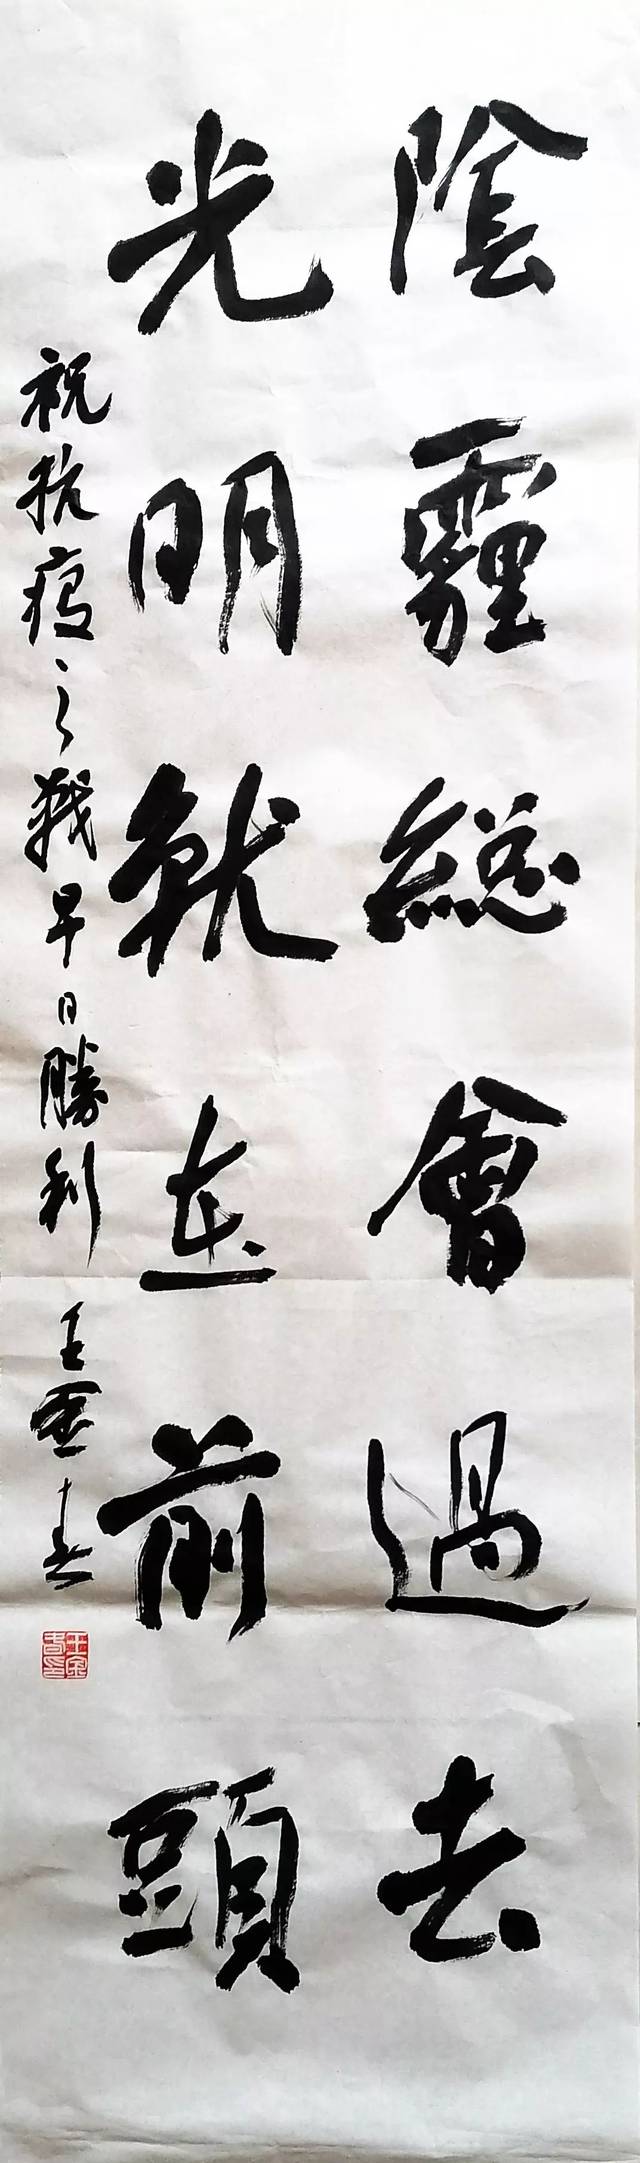 陰霾總會過去
光明就在前頭
祝抗疫之戰早日勝利 王雲春